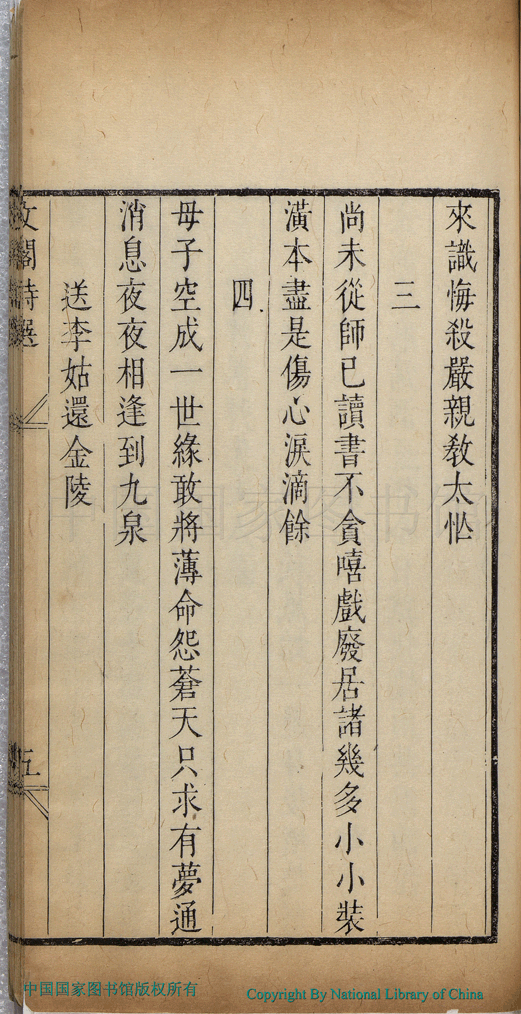 來識悔殺嚴親敎太忙
三
尚未從師已讀書不貪嘻戲廢居諸幾多小小裝
潢本盡是傷心淚滴餘
四
母子空成一世緣敢將薄命怨蒼天只求有夢通
消息夜夜相逢到九泉
送李姑還金陵
文閣詩選
五
中国国家图书馆
中国国家图书馆版权所有
Copyright By National Library of China